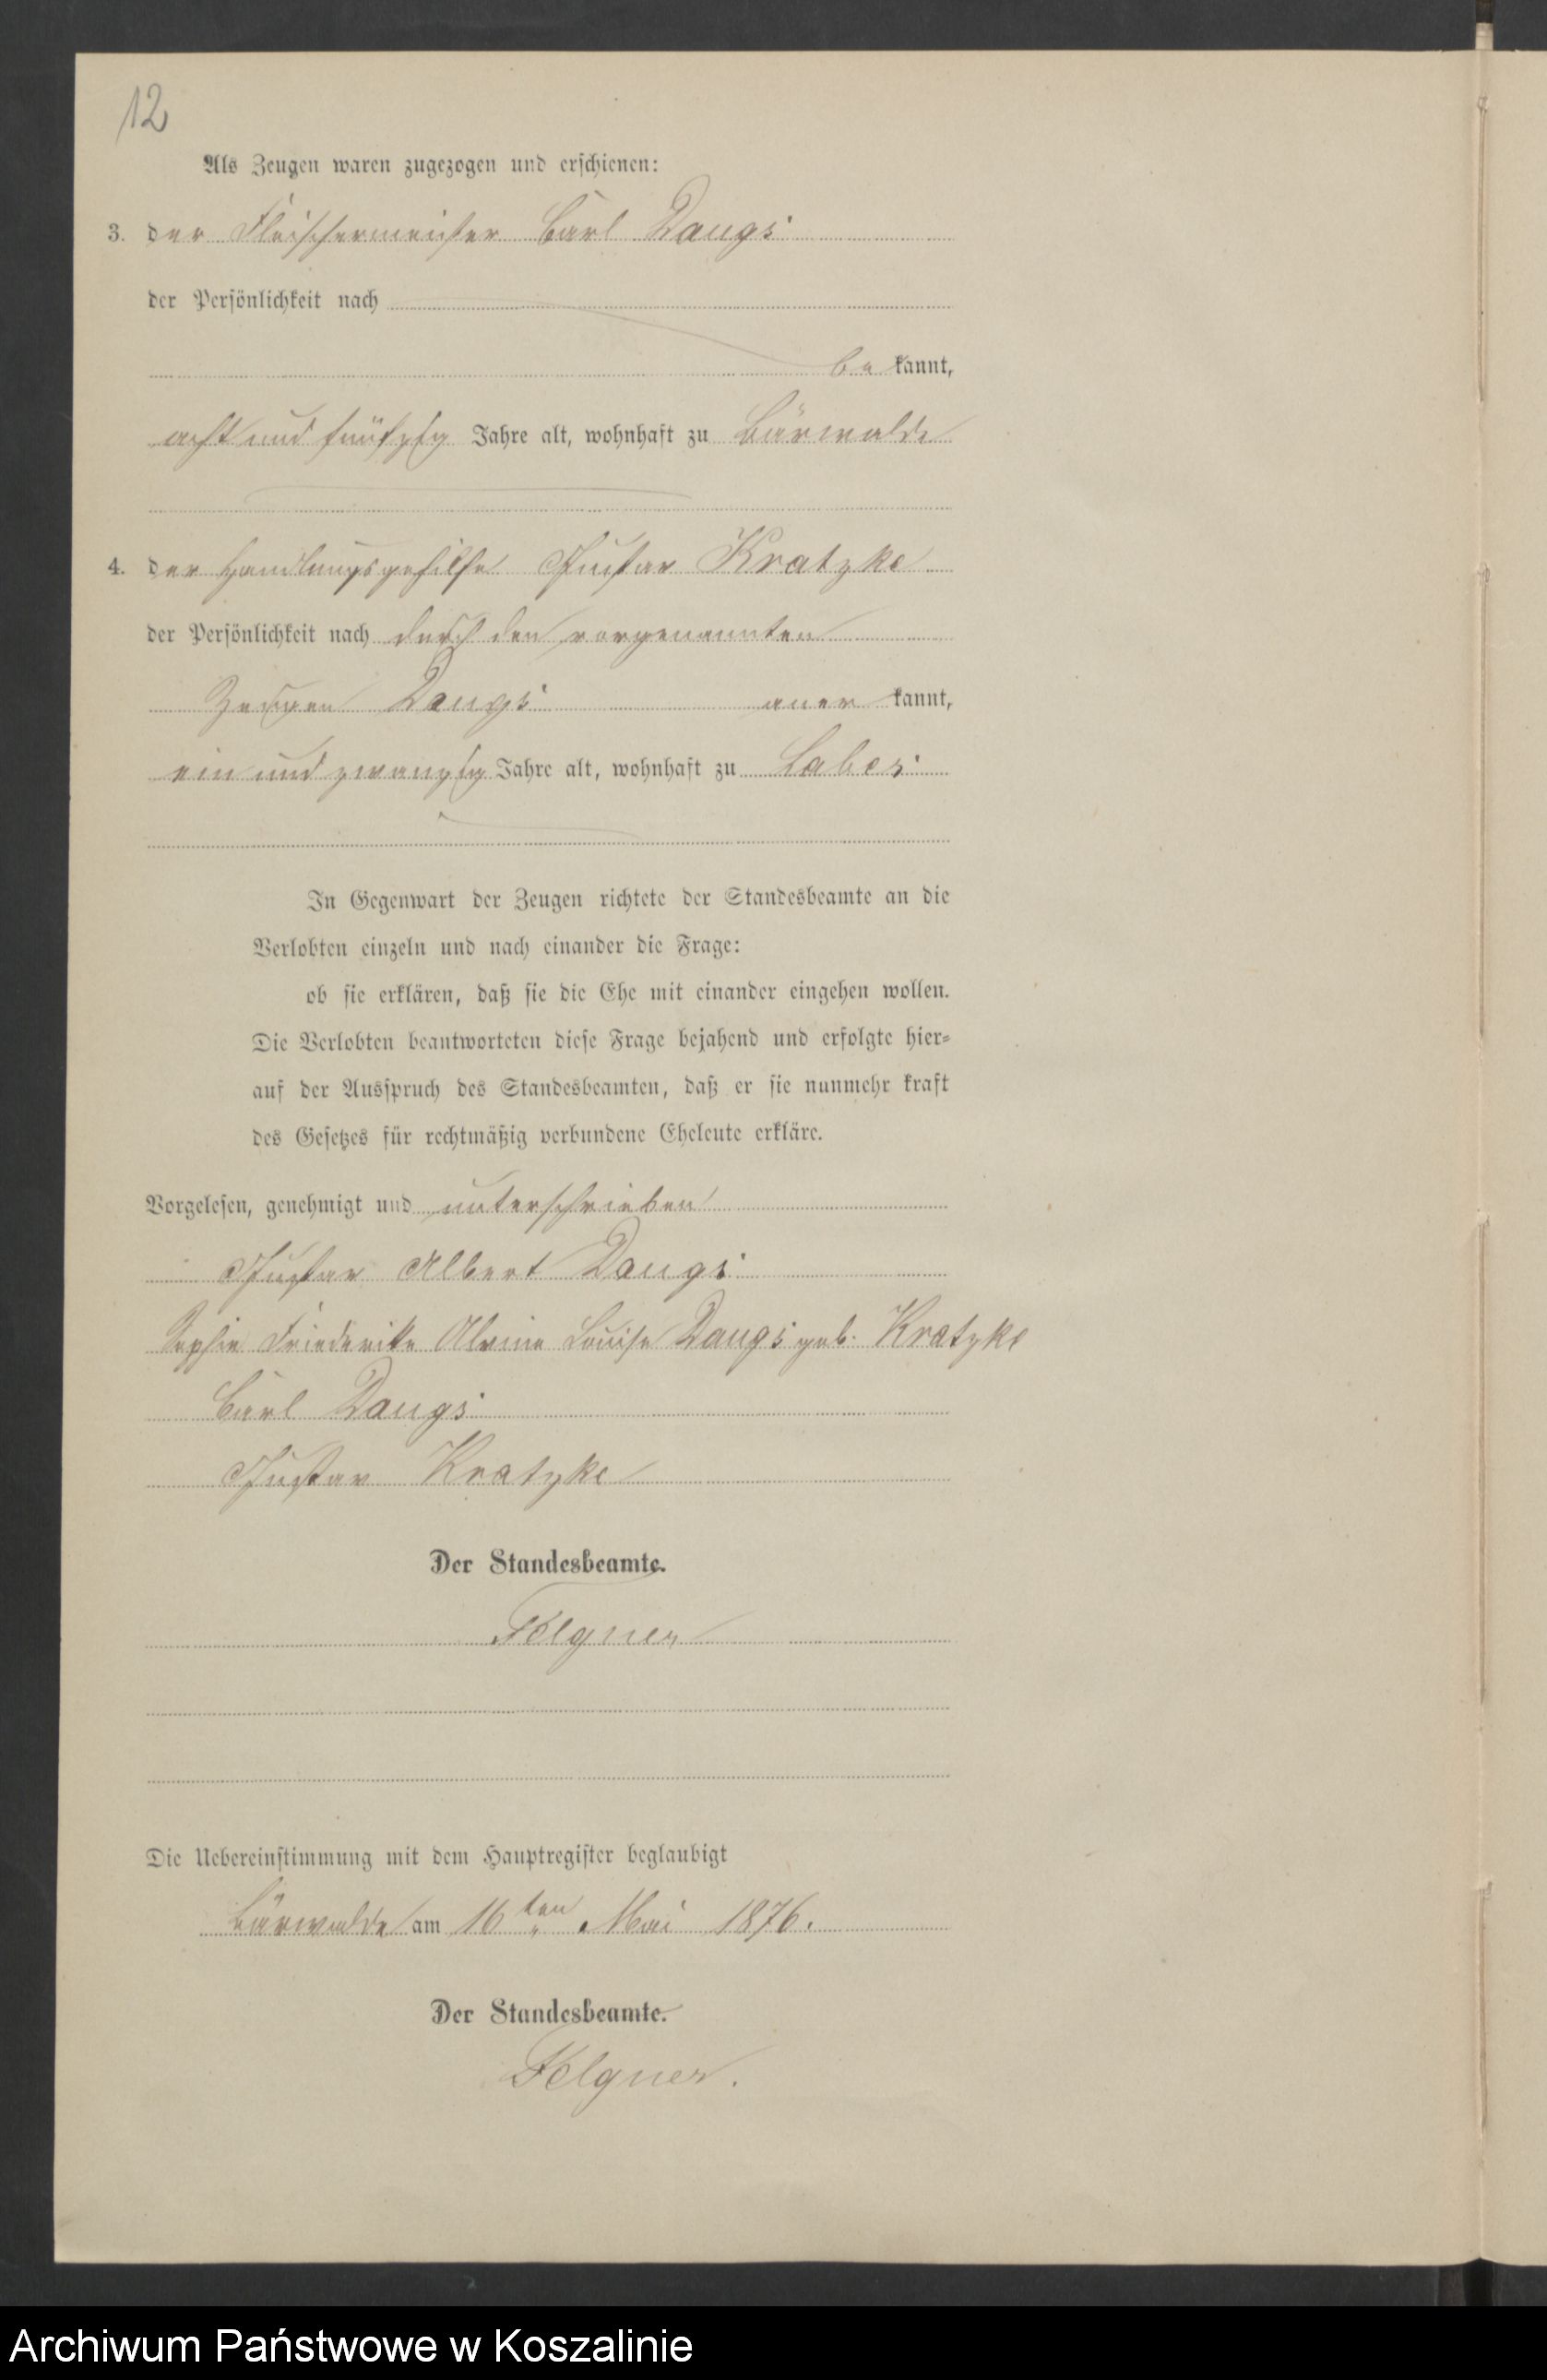 12
Als Zeugen waren zugezogen und erschienen:
3. der Fleischermeister Carl Dangs
der Persönlichkeit nach
be kannt,
acht und fünfzig Jahre alt, wohnhaft zu Bärwalde
4. der Handlungsgehilfe Gustav Kratzke
der Persönlichkeit nach durch den vorgenannten
Zeugen Dangs aner kannt,
ein und zwanzig Jahre alt, wohnhaft zu Labes
In Gegenwart der Zeugen richtete der Standesbeamte an die
Verlobten einzeln und nach einander die Frage:
ob sie erklären, daß sie die Ehe mit einander eingehen wollen.
Die Verlobten beantworteten diese Frage bejahend und erfolgte hier-
auf der Ausspruch des Standesbeamten, daß er sie nunmehr kraft
des Gesetzes für rechtmäßig verbundene Eheleute erkläre.
Vorgelesen, genehmigt und unterschrieben
Gustav Albert Dangs
Sophie Friederike Alwine Louise Dangs geb. Kratzke
Carl Dangs
Gustav Kratzke
Der Standesbeamte.
Felgner
Die Uebereinstimmung mit dem Hauptregister beglaubigt
Bärwalde am 16ten Mai 1876.
Der Standesbeamte.
Felgner.
Archiwum Państwowe w Koszalinie